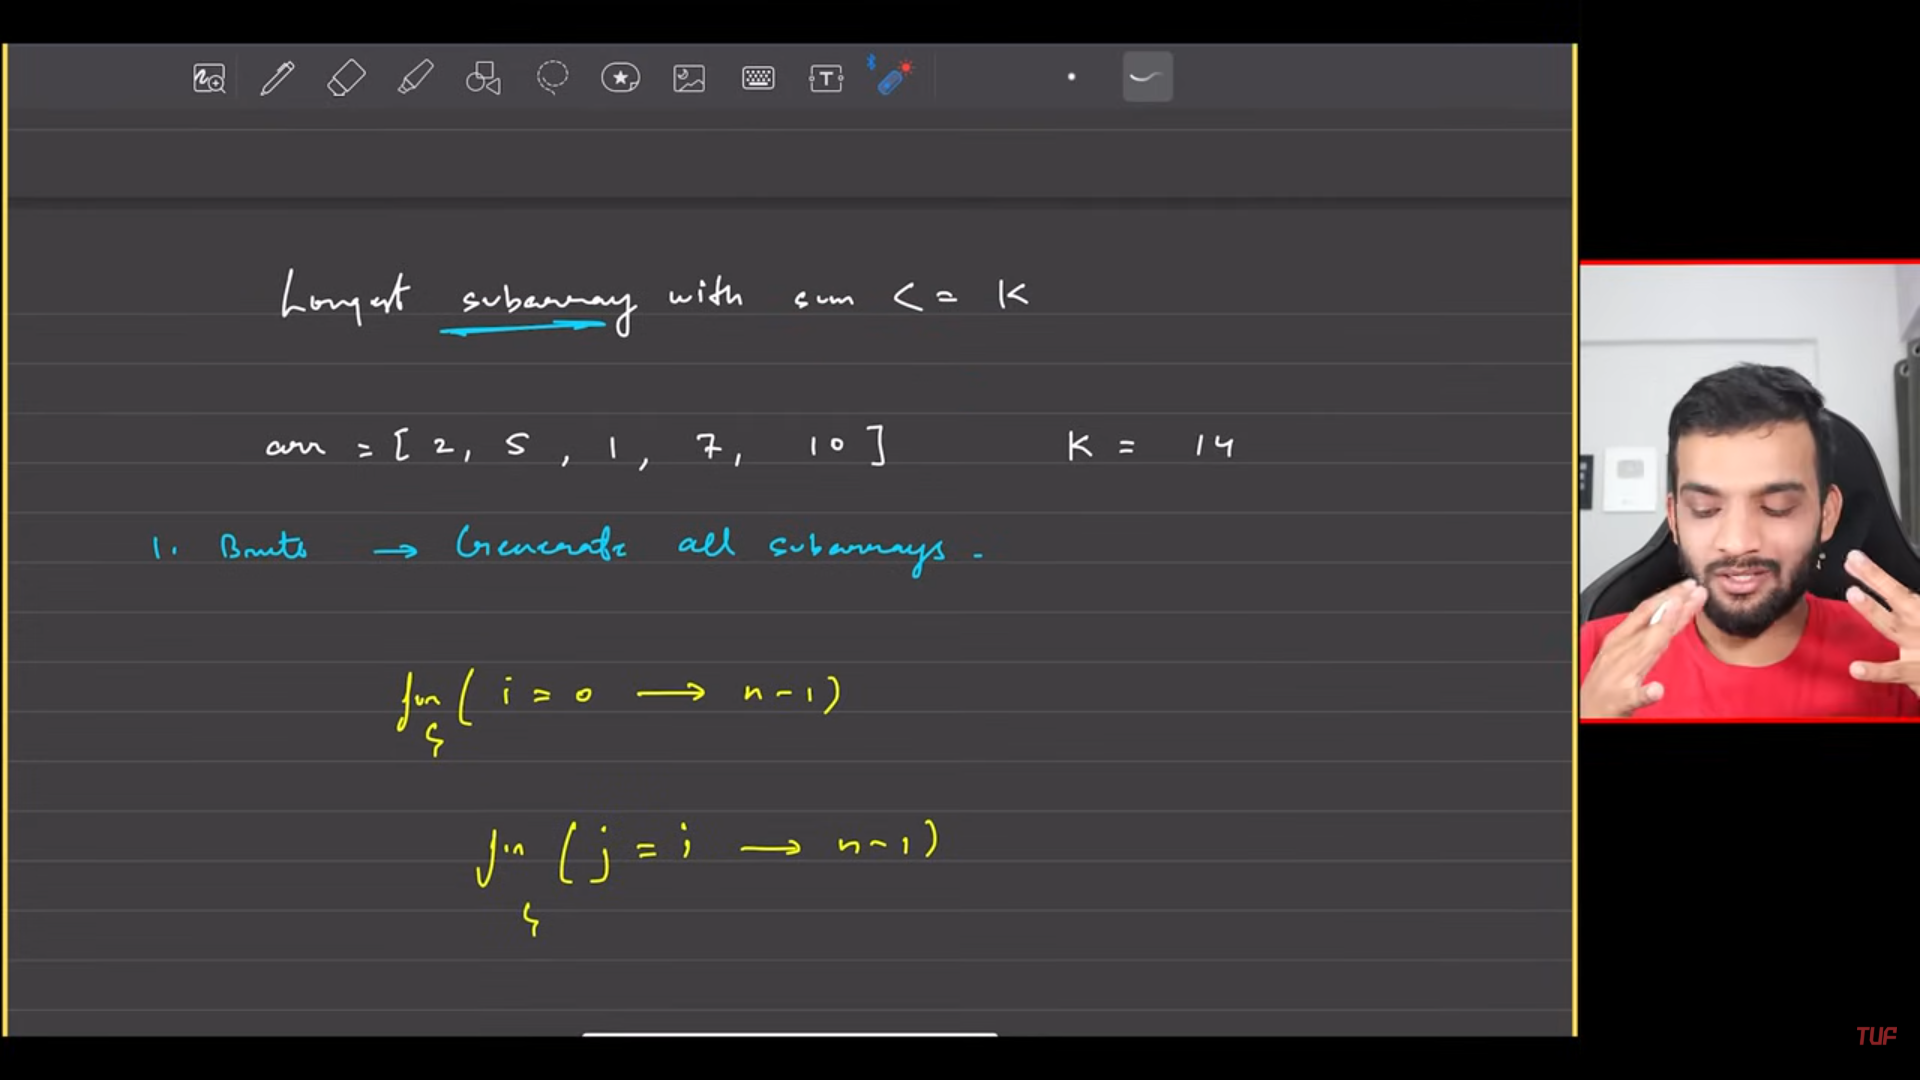 Longest subarray with sum <= K
arr = [ 2, 5, 1, 7, 10 ] K = 14
1. Brute → Generate all subarrays.
for ( i = 0 → n-1)
{
for ( j = i → n-1)
{
TUF